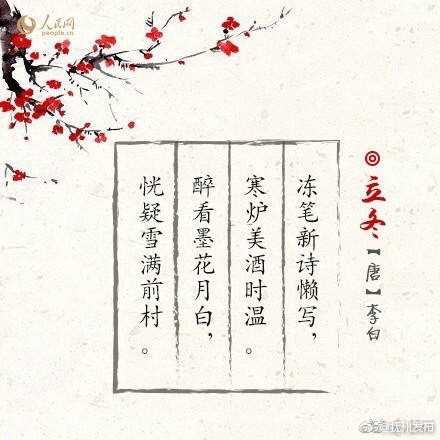 人民网
people.cn
立冬
【唐】李白
冻笔新诗懒写，
寒炉美酒时温。
醉看墨花月白，
恍疑雪满前村。